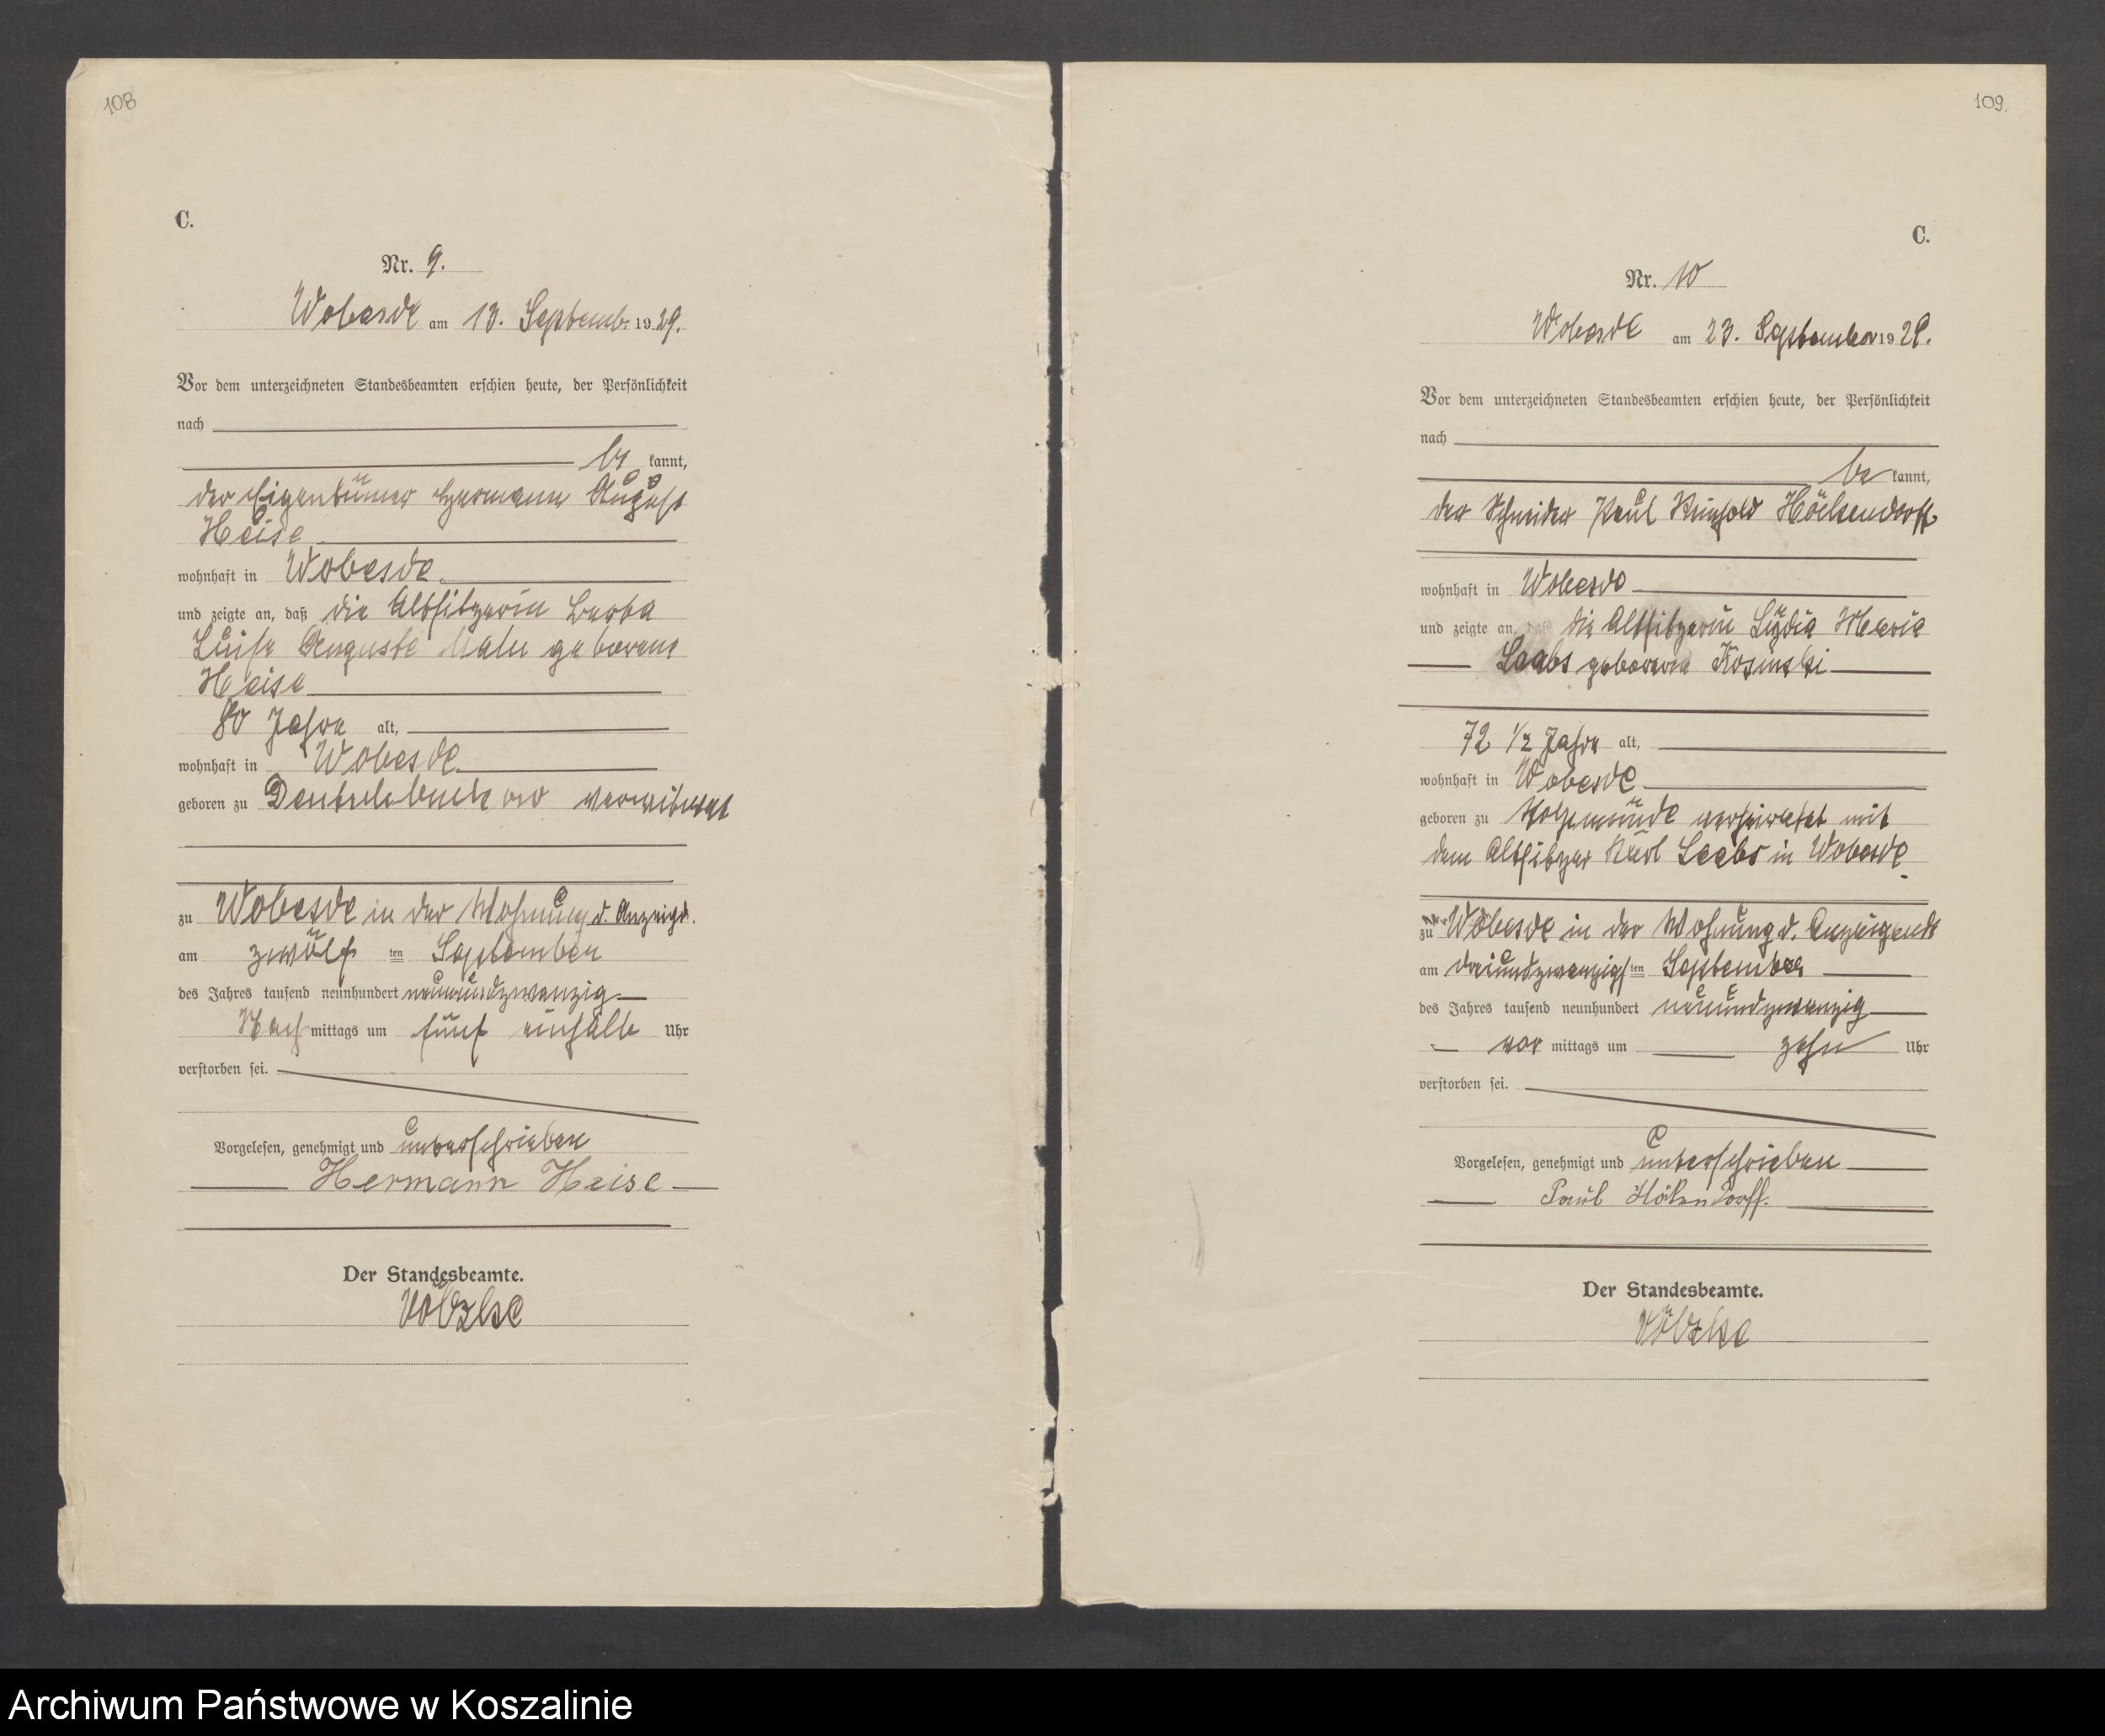 108
C.
Nr. 9.
Wobesde am 13. Septemb. 1929.
Vor dem unterzeichneten Standesbeamten erschien heute, der Persönlichkeit
nach
be kannt,
der Eigentümer Hermann August
Heise
wohnhaft in Wobesde
und zeigte an, daß die Altsitzerin Berta
Luise Auguste geborene
Heise
80 Jahre alt,
wohnhaft in Wobesde
geboren zu verwitwet
zu Wobesde in der Wohnung d. Anzeigd.
am zwölf ten September
des Jahres tausend neunhundert neunundzwanzig
Nach mittags um fünf einhalb Uhr
verstorben sei.
Vorgelesen, genehmigt und unterschrieben
Hermann Heise
Der Standesbeamte.
Völzke
109.
C.
Nr. 10
Wobesde am 23. September 1929.
Vor dem unterzeichneten Standesbeamten erschien heute, der Persönlichkeit
nach
be kannt,
der Schneider Paul Reinhold Höckendorff
wohnhaft in Wobesde
und zeigte an, daß die Altsitzerin Lydia Maria
Laabs geborene Kosinski
72 1/2 Jahre alt,
wohnhaft in Wobesde
geboren zu verheiratet mit
dem Altsitzer Karl Laabs in Wobesde.
zu Wobesde in der Wohnung d. Anzeigende
am dreiundzwanzigsten September
des Jahres tausend neunhundert neunundzwanzig
vor mittags um zehn Uhr
verstorben sei.
Vorgelesen, genehmigt und unterschrieben
Paul Hökendorff.
Der Standesbeamte.
Völzke
Archiwum Państwowe w Koszalinie